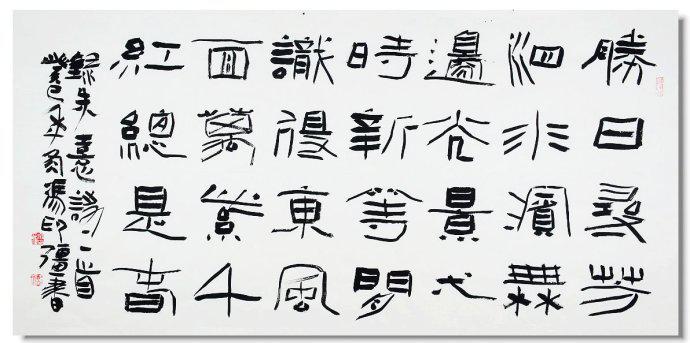 勝日尋芳
泗水濱無
邊光景弌
時新等閒
識得東風
面萬紫千
紅總是春
錄朱熹詩一首
癸巳年馮印彊書